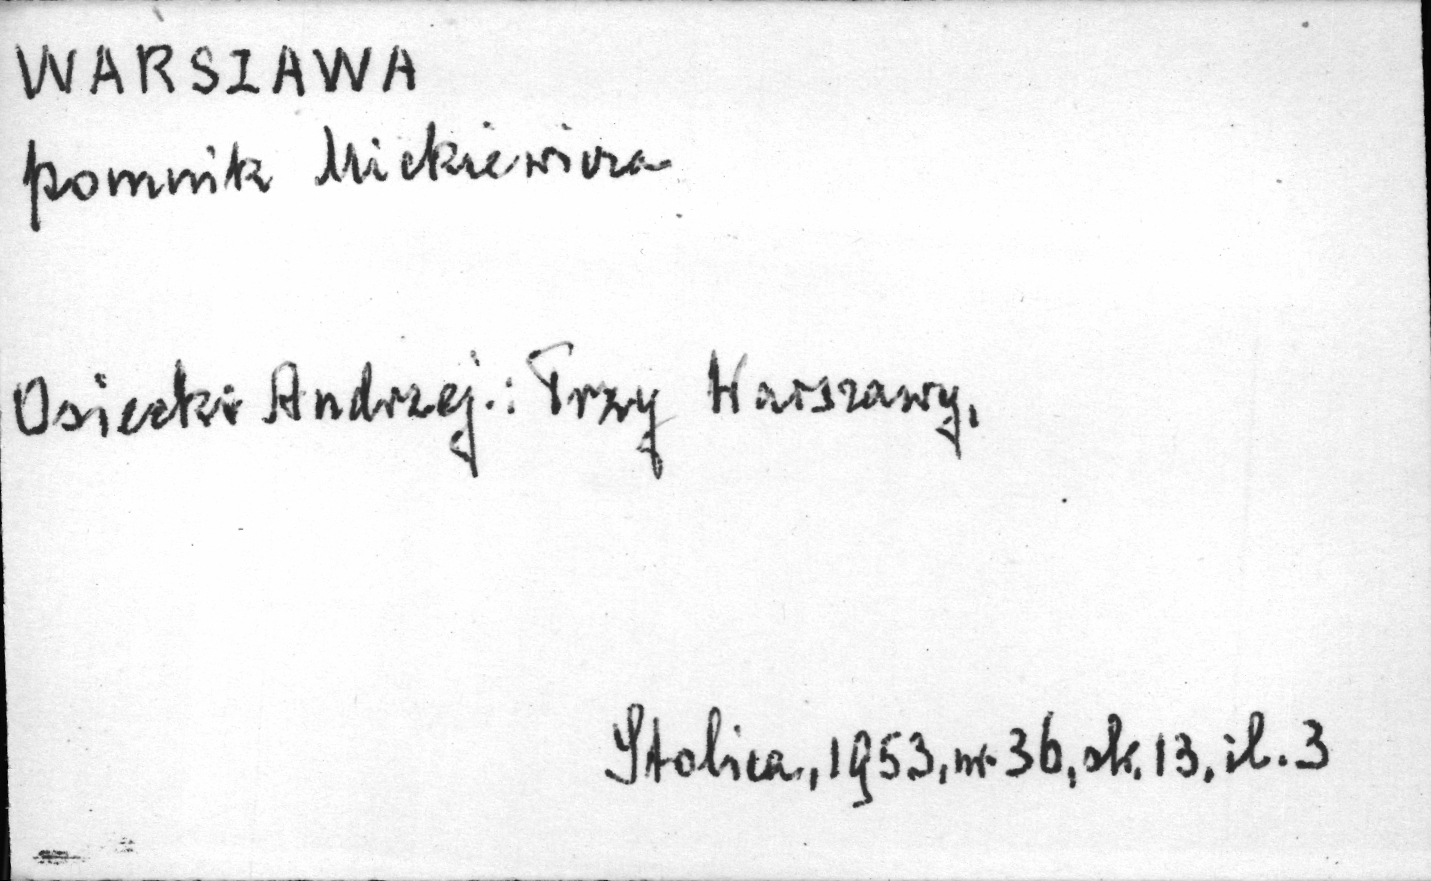 WARSZAWA
pomnik Mickiewicza
Osiecki Andrzej.: Trzy Warszawy,
Stolica, 1953, nr 36, sk. 13, il. 3